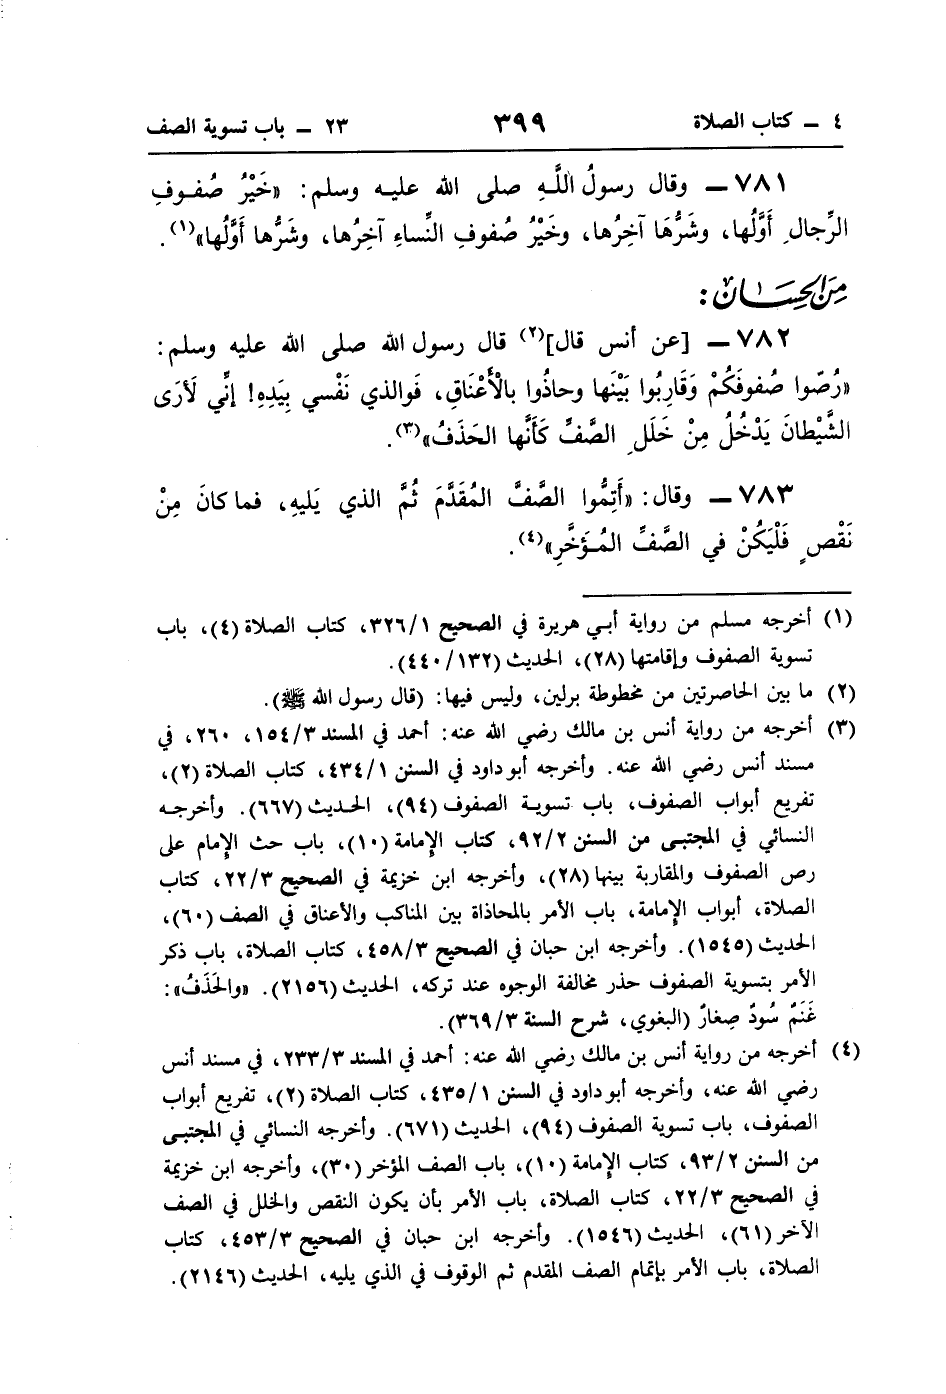 ٤ ـ كتاب الصلاة ٣٩٩ ٢٣ ـ باب تسوية الصف
٧٨١ ـ وقال رسولُ اللَّهِ صلى الله عليه وسلم: «خَيْرُ صُفوفِ
الرِّجالِ أَوَّلُها، وشَرُّهَا آخِرُها، وخَيْرُ صُفوفِ النِّساءِ آخِرُها، وشَرُّها أوَّلُها»(١).
مِنَ الحِسَان:
٧٨٢ ـ [عن أنس قال](٢) قال رسول الله صلى الله عليه وسلم:
«رُصّوا صُفوفَكُمْ وَقَارِبُوا بَيْنَها وحاذُوا بالْأَعْنَاقِ، فَوالذي نَفْسي بِيَدِهِ! إنِّي لَأرَى
الشَّيْطانَ يَدْخُلُ مِنْ خَلَلِ الصَّفِّ كَأَنَّها الحَذَفُ»(٣).
٧٨٣ ـ وقال: «أَتِمُّوا الصَّفَّ المُقَدَّمَ ثُمَّ الذي يَليهِ، فما كانَ مِنْ
نَقْصٍ فَلْيَكُنْ في الصَّفِّ المُؤَخَّرِ»(٤).
(١) أخرجه مسلم من رواية أبي هريرة في الصحيح ٣٢٦/١، كتاب الصلاة (٤)، باب
تسوية الصفوف وإقامتها (٢٨)، الحديث (٤٤٠/١٣٢).
(٢) ما بين الحاصرتين من مخطوطة برلين، وليس فيها: (قال رسول الله ﷺ).
(٣) أخرجه من رواية أنس بن مالك رضي الله عنه: أحمد في المسند ١٥٤/٣، ٢٦٠، في
مسند أنس رضي الله عنه. وأخرجه أبو داود في السنن ٤٣٤/١، كتاب الصلاة (٢)،
تفريع أبواب الصفوف، باب تسوية الصفوف (٩٤)، الحديث (٦٦٧). وأخرجه
النسائي في المجتبى من السنن ٩٢/٢، كتاب الإمامة (١٠)، باب حث الإمام على
رص الصفوف والمقاربة بينها (٢٨)، وأخرجه ابن خزيمة في الصحيح ٢٢/٣، كتاب
الصلاة، أبواب الإمامة، باب الأمر بالمحاذاة بين المناكب والأعناق في الصف (٦٠)،
الحديث (١٥٤٥). وأخرجه ابن حبان في الصحيح ٤٥٨/٣، كتاب الصلاة، باب ذكر
الأمر بتسوية الصفوف حذر مخالفة الوجوه عند تركه، الحديث (٢١٥٦). «والحَذَفُ»:
غَنَمٌ سُودٌ صِغارٌ (البغوي، شرح السنة ٣٦٩/٣).
(٤) أخرجه من رواية أنس بن مالك رضي الله عنه: أحمد في المسند ٢٣٣/٣، في مسند أنس
رضي الله عنه، وأخرجه أبو داود في السنن ٤٣٥/١، كتاب الصلاة (٢)، تفريع أبواب
الصفوف، باب تسوية الصفوف (٩٤)، الحديث (٦٧١). وأخرجه النسائي في المجتبى
من السنن ٩٣/٢، كتاب الإمامة (١٠)، باب الصف المؤخر (٣٠)، وأخرجه ابن خزيمة
في الصحيح ٢٢/٣، كتاب الصلاة، باب الأمر بأن يكون النقص والخلل في الصف
الآخر (٦١)، الحديث (١٥٤٦). وأخرجه ابن حبان في الصحيح ٤٥٣/٣، كتاب
الصلاة، باب الأمر بإتمام الصف المقدم ثم الوقوف في الذي يليه، الحديث (٢١٤٦).